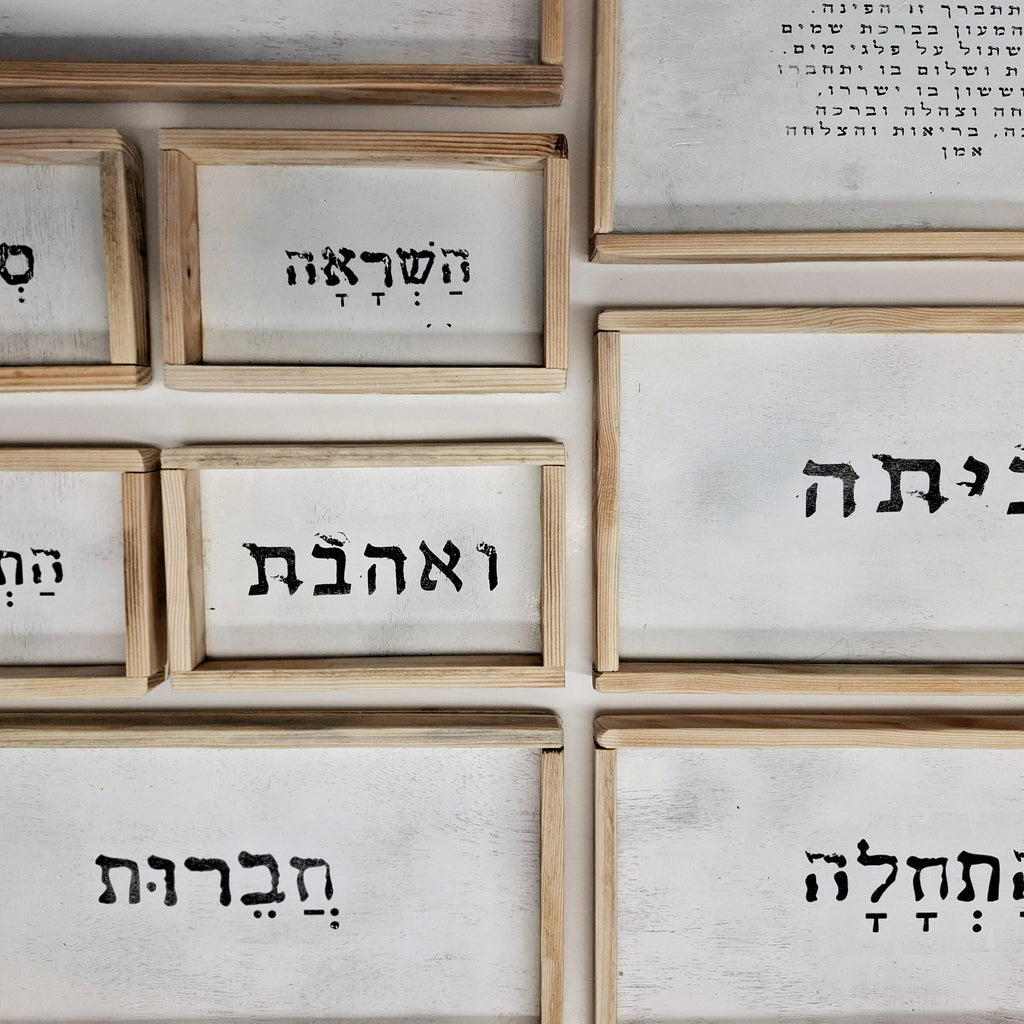 תתברך זו הפינה.
המעון בברכת שמים
שתול על פלגי מים.
ושלום בו יתחברו
ששון בו ישררו,
וצהלה וברכה
בריאות והצלחה
אמן
הַשְׁרָאָה
ואהבת
ביתה
חֲבֵרוּת
הַתְחָלָה